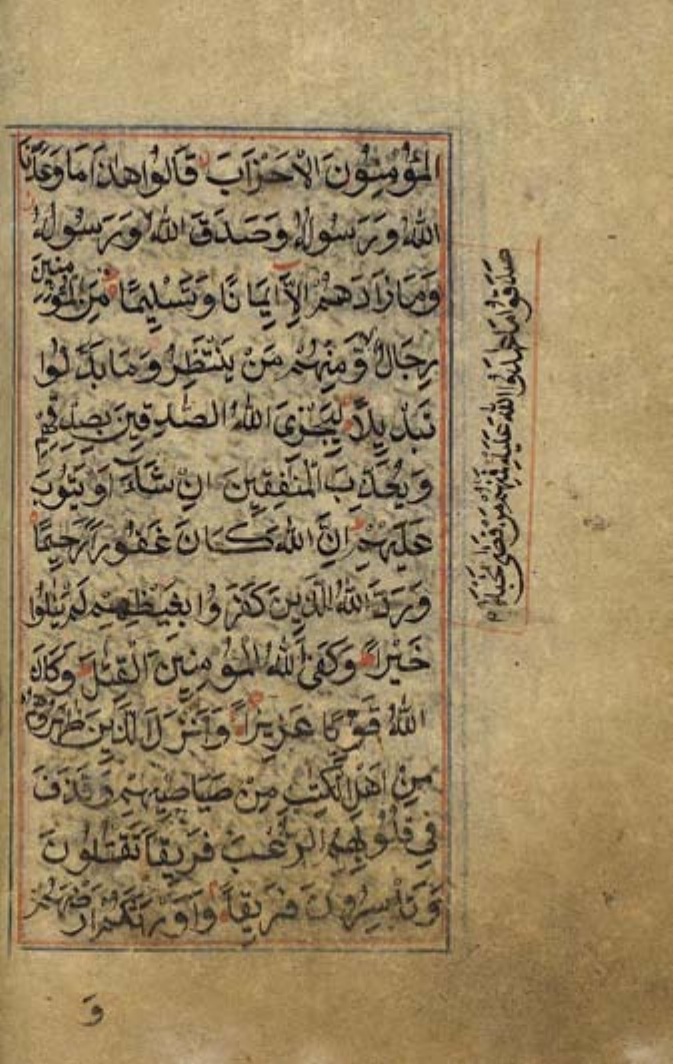 المُؤْمِنُونَ الْاَحْزَابَ قَالُوا هٰذَا مَا وَعَدَنَا
اللهُ وَرَسُولُهُ وَصَدَقَ اللهُ وَرَسُولُهُ
وَمَا زَادَهُمْ اِلَّا اِيْمَانًا وَتَسْلِيمًا مِنَ الْمُؤْمِنِينَ
رِجَالٌ وَّمِنْهُمْ مَنْ يَنْتَظِرُ وَمَا بَدَّلُوا
تَبْدِيلًا لِيَجْزِىَ اللهُ الصّٰدِقِينَ بِصِدْقِهِمْ
وَيُعَذِّبَ الْمُنٰفِقِينَ اِنْ شَآءَ اَوْ يَتُوبَ
عَلَيْهِمْ اِنَّ اللهَ كَانَ غَفُورًا رَحِيمًا
وَرَدَّ اللهُ الَّذِينَ كَفَرُوا بِغَيْظِهِمْ لَمْ يَنَالُوا
خَيْرًا وَكَفَى اللهُ الْمُؤْمِنِينَ الْقِتَالَ وَكَانَ
اللهُ قَوِيًّا عَزِيزًا وَاَنْزَلَ الَّذِينَ ظَاهَرُوهُمْ
مِنْ اَهْلِ الْكِتٰبِ مِنْ صَيَاصِيهِمْ وَقَذَفَ
فِي قُلُوبِهِمُ الرُّعْبَ فَرِيقًا تَقْتُلُونَ
وَتَأْسِرُونَ فَرِيقًا وَاَوْرَثَكُمْ اَرْضَهُمْ
وَ
صَدَقُوا مَا عَاهَدُوا اللهَ عَلَيْهِ فَمِنْهُمْ مَنْ قَضٰى نَحْبَهُ